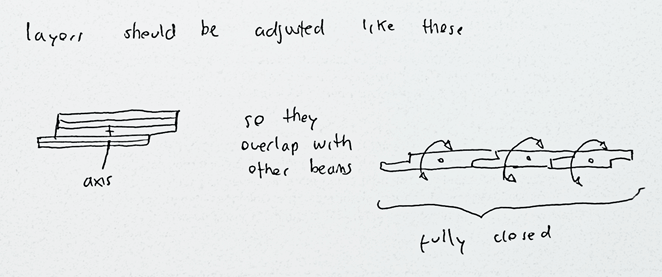 layers should be adjusted like these
so they
overlap with
other beams
axis
fully closed